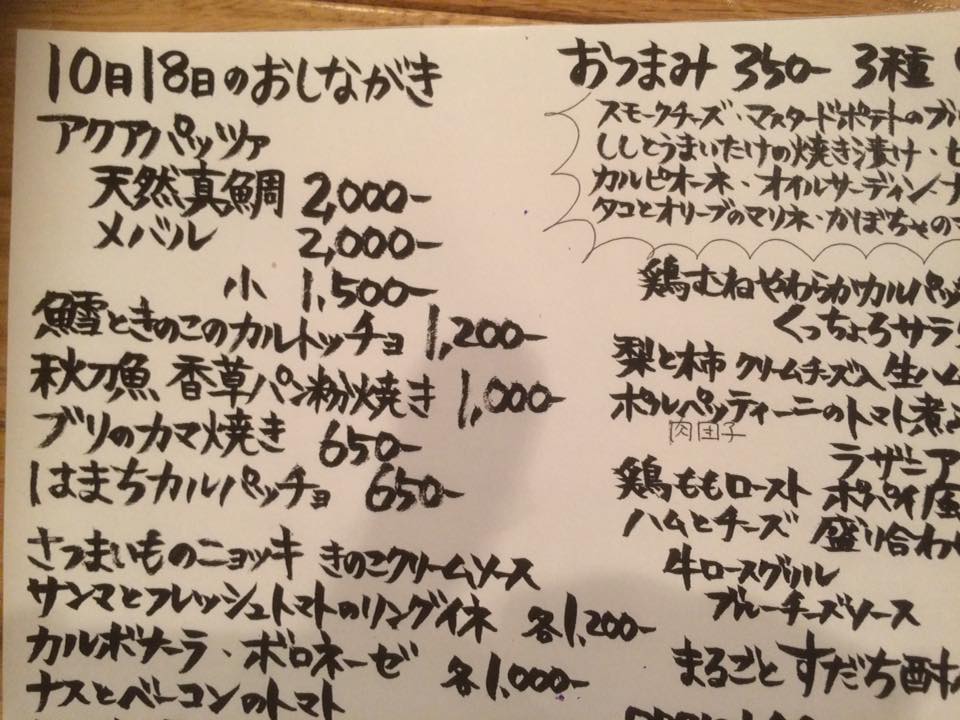 10月18日のおしながき
アクアパッツァ
天然真鯛 2,000-
メバル 2,000-
小 1,500-
鱈ときのこのカルトッチョ 1,200-
秋刀魚 香草パン粉焼き 1,000-
ブリのカマ焼き 650-
はまちカルパッチョ 650-
さつまいものニョッキ きのこクリームソース
サンマとフレッシュトマトのリングイネ 各1,200-
カルボナーラ・ボロネーゼ 各1,000-
ナスとベーコンのトマト
おつまみ 350- 3種
スモークチーズ・マスタードポテトのブル
ししとうまいたけの焼き漬け・ピ
カルピオーネ・オイルサーディン
タコとオリーブのマリネ・かぼちゃの
鶏むねやわらかカルパッ
くっちょろサラ
梨と柿 クリームチーズ入 生ハム
ポルペッティーニのトマト煮
肉団子
ラザニア
鶏ももロースト ポパイ風
ハムとチーズ 盛り合わ
牛ロースグリル
ブルーチーズソース
まるごと すだち酎